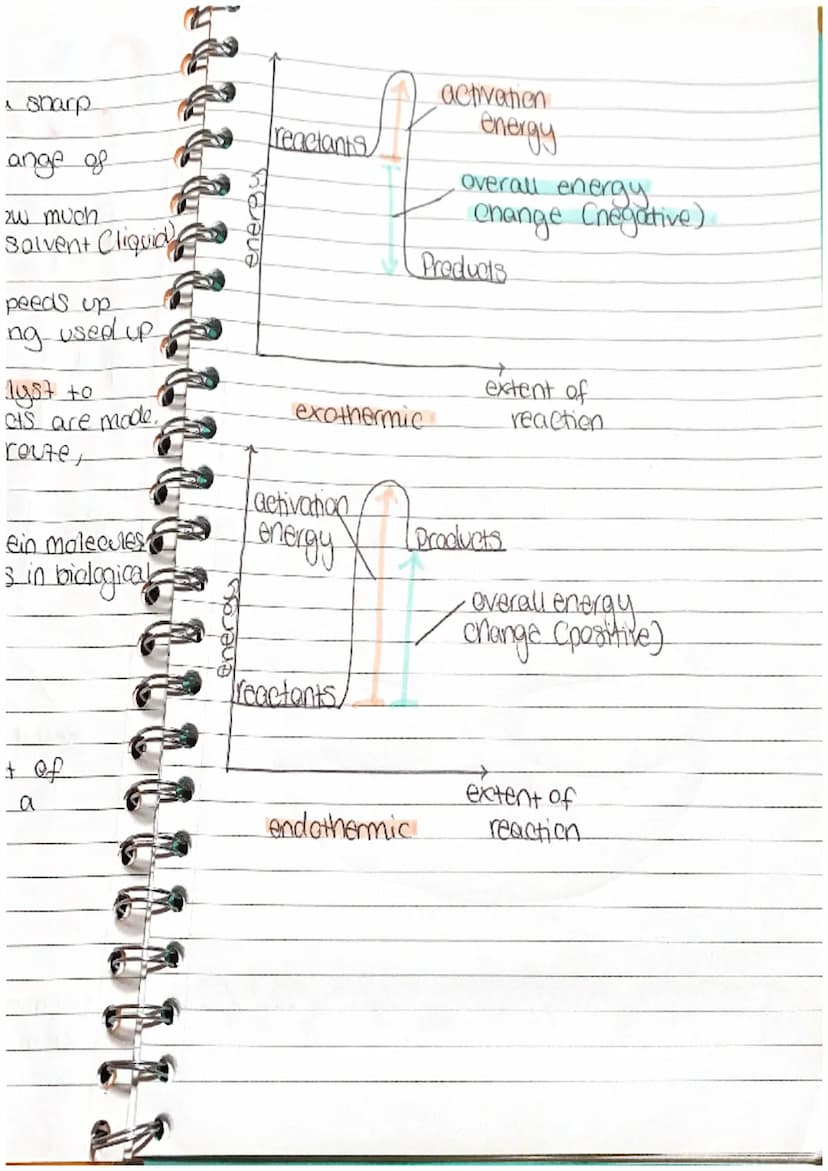 sharp
ange of
ow much
solvent (liquid)
peeds up
ng used up
lyst to
cts are made.
route,
ein molecules
s in biological
t of
a
activation
energy
reactants
overall energy
change (negative)
energy
Products
extent of
reaction
exothermic
activation
energy
products
overall energy
change (positive)
energy
reactants
extent of
reaction
endothermic